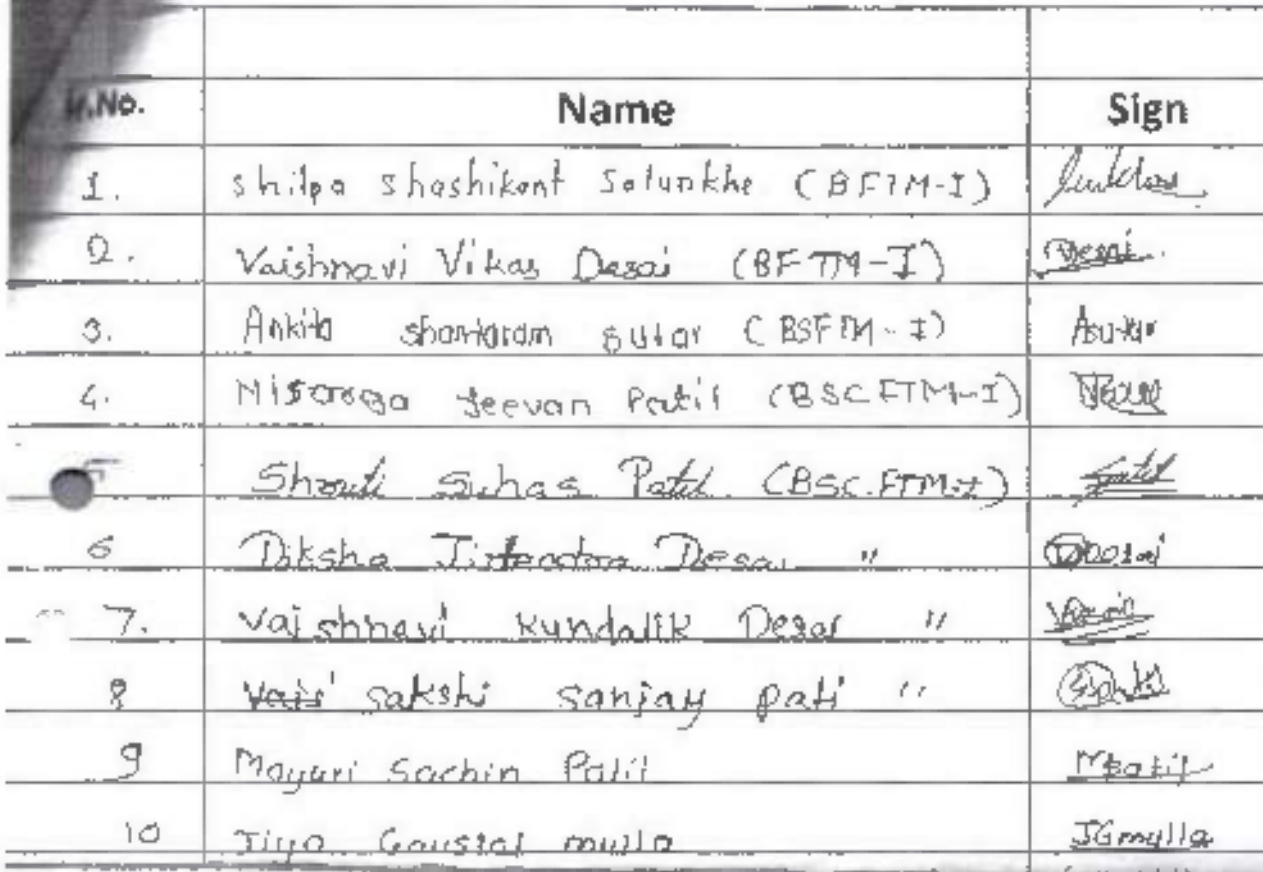 Sr.No. Name Sign
1. Shilpa Shashikant Salunkhe (BFTM-I)
2. Vaishnavi Vikas Desai (BFTM-I) Desai
3. Ankita Shantaram Sutar (BSFTM-I) Asutar
4. Nisarga Jeevan Patil (BSC FTM-I)
5 Shruti Suhas Patil (BSC.FTM-I)
6 Diksha Jitendra Desai " DDesai
7. Vaishnavi Kundalik Desai "
8 sakshi sanjay pati "
9 Mayuri Sachin Patil Mpatil
10 Jiya mulla JGmulla